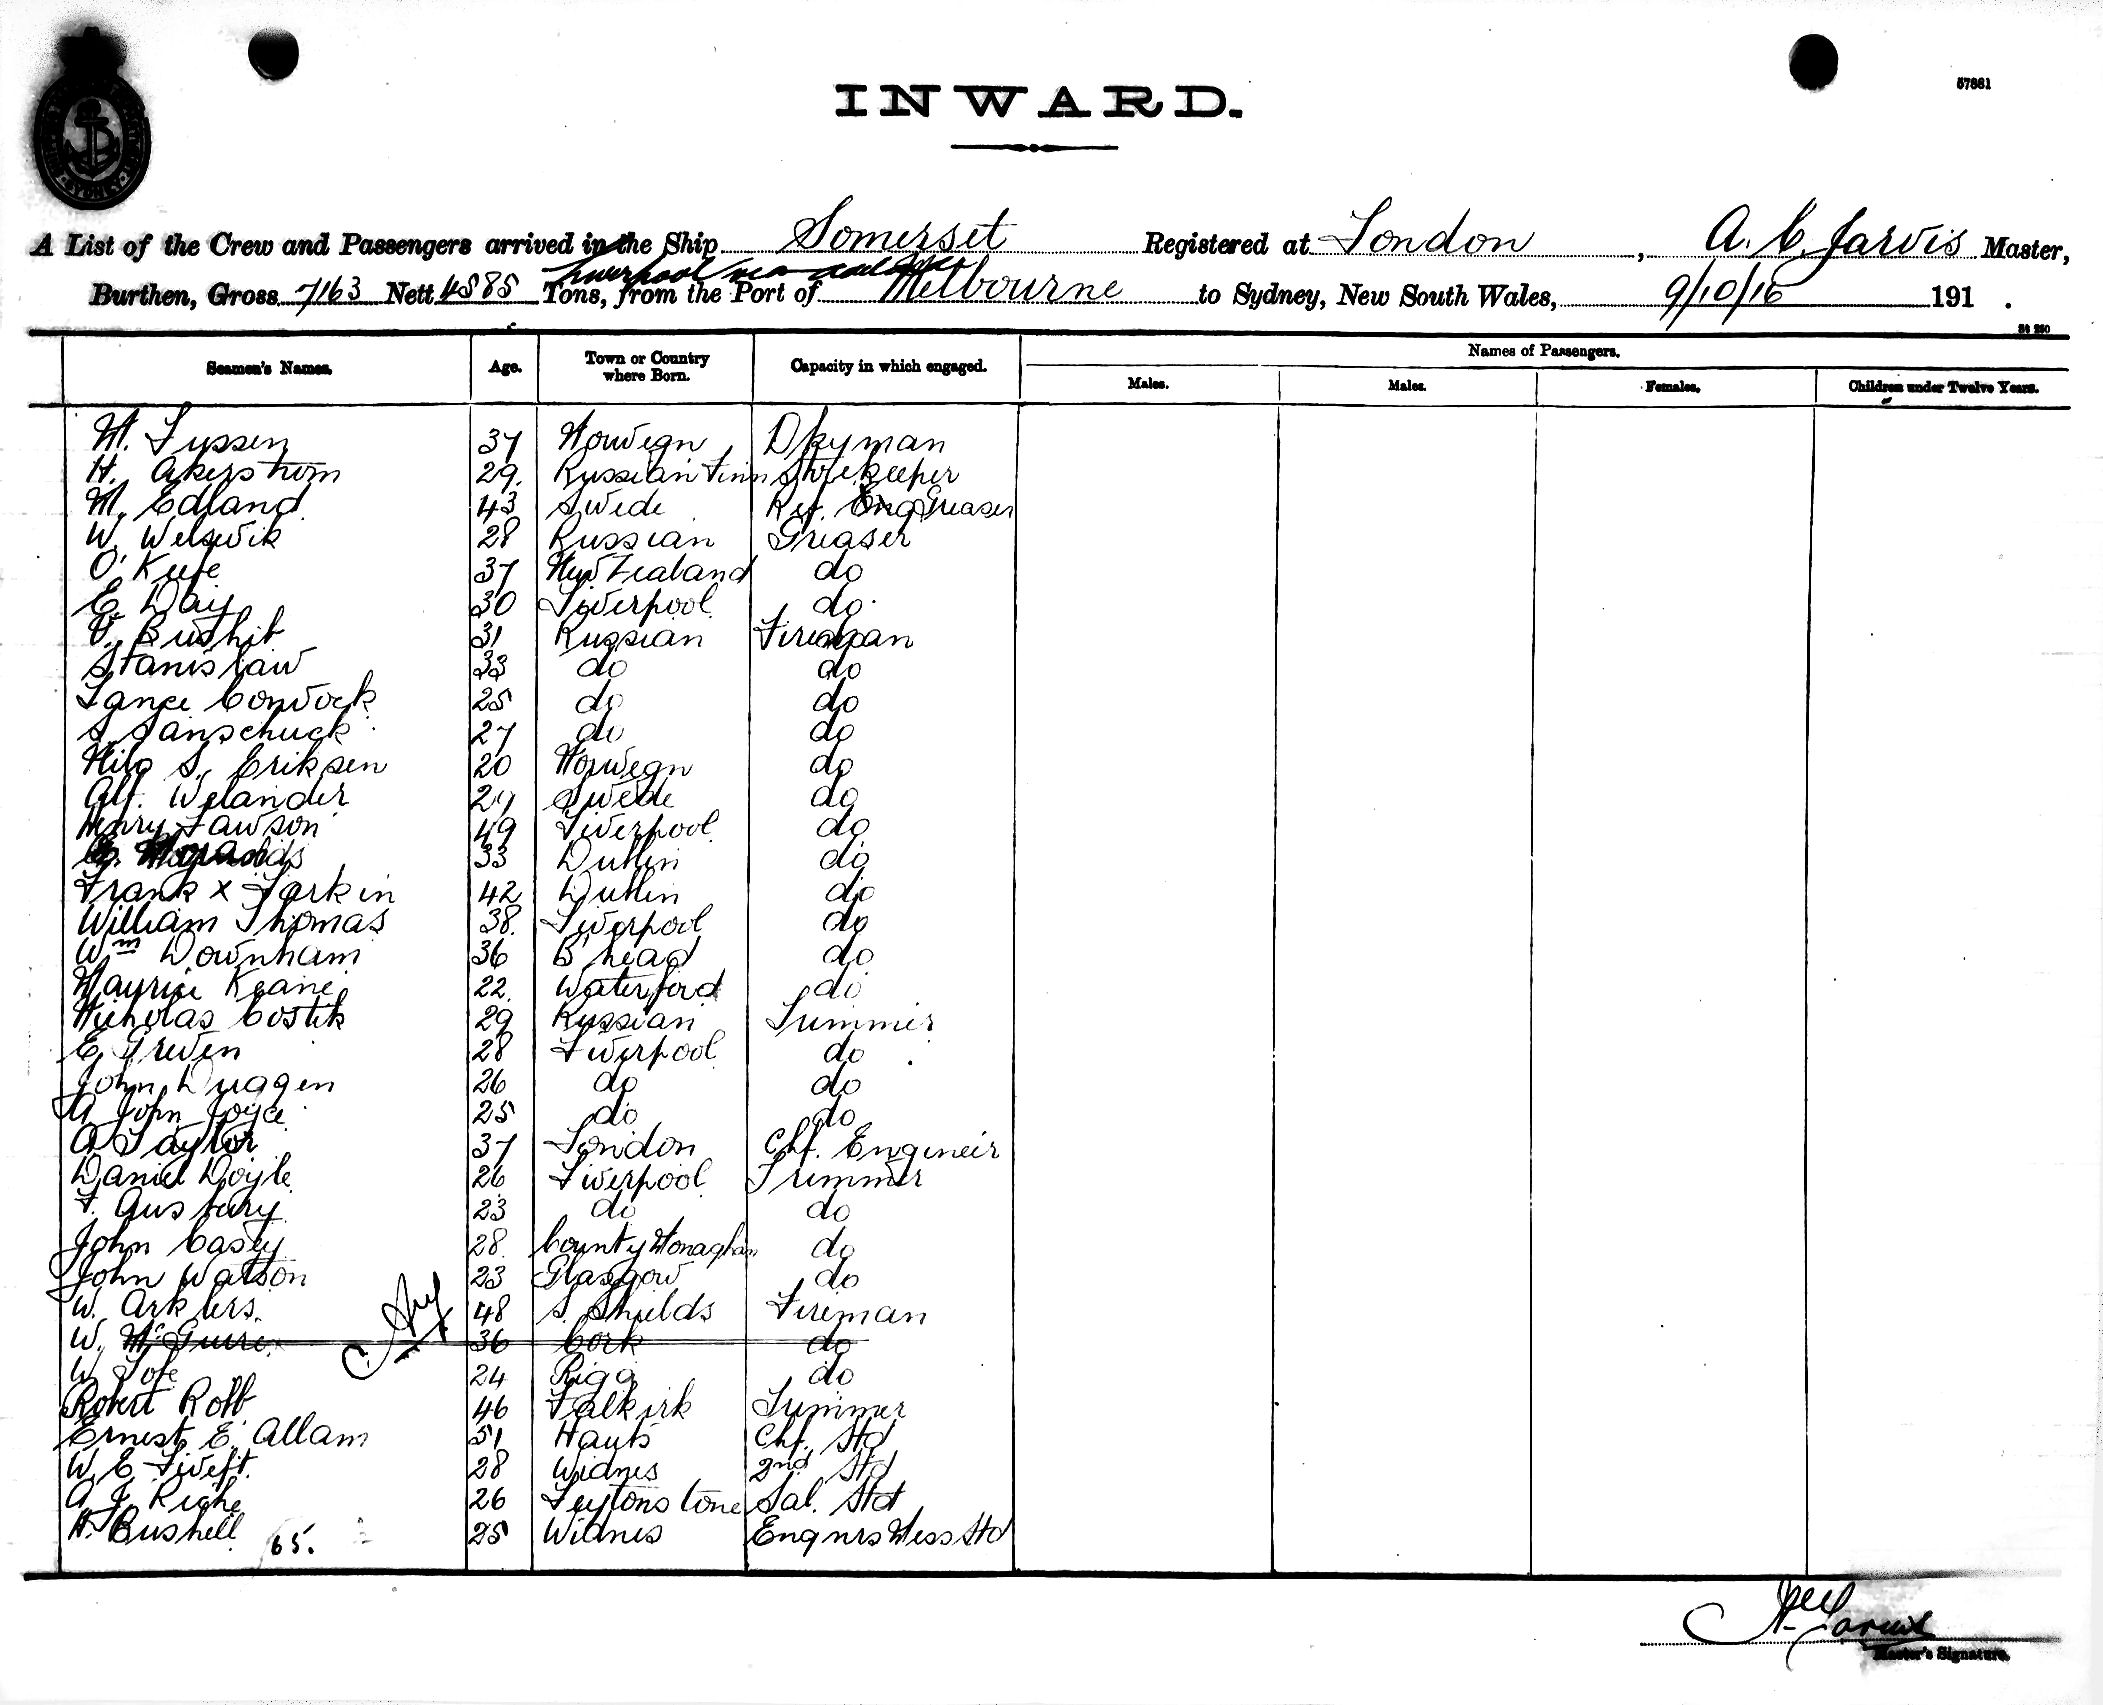 57881
INWARD.
A List of the Crew and Passengers arrived in the Ship Somerset Registered at London, A. C. Jarvis Master,
Liverpool via
Burthen, Gross 7163 Nett 4585 Tons, from the Port of Melbourne to Sydney, New South Wales, 9/10/16 191 .
St 250
Seamen's Names. Age. Town or Country where Born. Capacity in which engaged. Names of Passengers.
Males. Males. Females. Children under Twelve Years.
M. Fyssen 37 Norwegn Dkyman
H. Akerstrom 29. Russian Finn Storekeeper
M. Edland 43 Swede Ref. Greaser
W. Welswik 28 Russian Greaser
O'Keefe 37 New Zealand do
E. Day 30 Liverpool do
V. Bushit 31 Russian Fireman
Stanislaw 33 do do
Lance Convock 25 do do
S. Sanschuck 27 do do
Nils S. Eriksen 20 Norwegn do
Alf. Welander 29 Swede do
Henry Lawson 49 Liverpool do
33 Dublin do
Frank x Larkin 42 Dublin do
William Thomas 38. Liverpool do
Wm Downham 36 B'head do
Maurice Keane 22. Waterford do
Nicholas Costik 29 Russian Trimmer
E. Greven 28 Liverpool do
John Duggen 26 do do
A John Joyce 25 do do
A Taylor 37 London Chf. Engineer
Daniel Doyle 26 Liverpool Trimmer
F. Ausbury 23 do do
John Casey 28. County Monaghan do
John Watson 23 Glasgow do
W. Arklers. 48 S. Shields Fireman
W. McGuire 36 Cork do
W. Sofe 24 Riga do
Robert Robb 46 Falkirk Trimmer
Ernest E. Allam 51 Hants Chf. Std
W. E. Livett. 28 Widnes 2nd Std
A. J. Righe 26 Leytonstone Sal. Std
H. Bushell 25 Widnes Engnrs Mess Std
65.
Master's Signature.